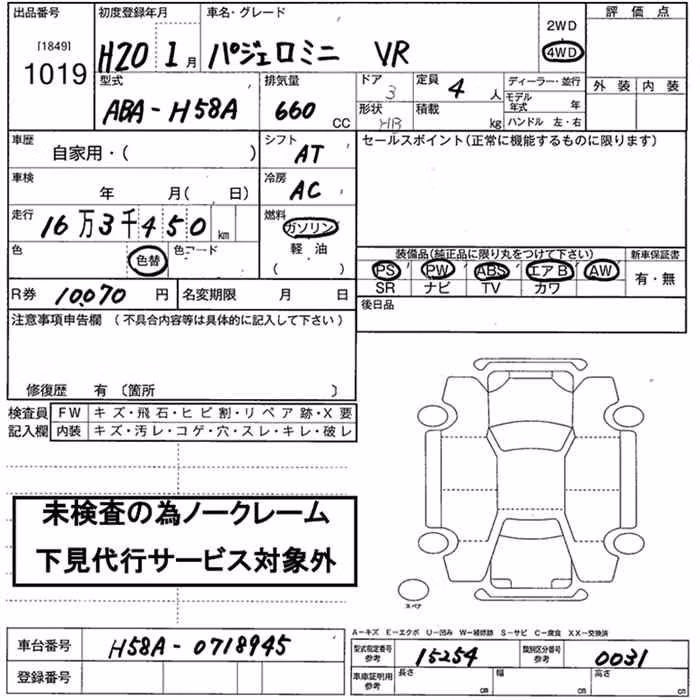 出品番号 初度登録年月 車名・グレード 2WD 評価点
[1849] 1019 H20 1月 パジェロミニ VR 4WD
外装 内装
型式 排気量 ドア 定員 ディーラー・並行
ABA-H58A 660 CC 3 4人 モデル年式 年
形状 HB 積載 kg ハンドル 左・右
車歴 シフト セールスポイント(正常に機能するものに限ります)
自家用・( ) AT
車検 冷房
年 月( 日) AC
走行 燃料
16万3千450km ガソリン
色 色替 色コード 軽油
( )
装備品(純正品に限り丸をつけて下さい) 新車保証書
PS PW ABS エアB AW 有・無
SR ナビ TV カワ
R券 10,070円 名変期限 月 日 後日品
注意事項申告欄 (不具合内容等は具体的に記入して下さい)
修復歴 有 〔箇所 〕
検査員 FW キズ・飛石・ヒビ割・リペア跡・X要
記入欄 内装 キズ・汚レ・コゲ・穴・スレ・キレ・破レ
未検査の為ノークレーム
下見代行サービス対象外
スペア
A-キズ E-エクボ U-凹み W-補修跡 S-サビ C-腐食 XX-交換済
車台番号 H58A-0718945 型式指定番号参考 15254 類別区分番号参考 0031
登録番号 車庫証明用参考 長さ cm 幅 cm 高さ cm